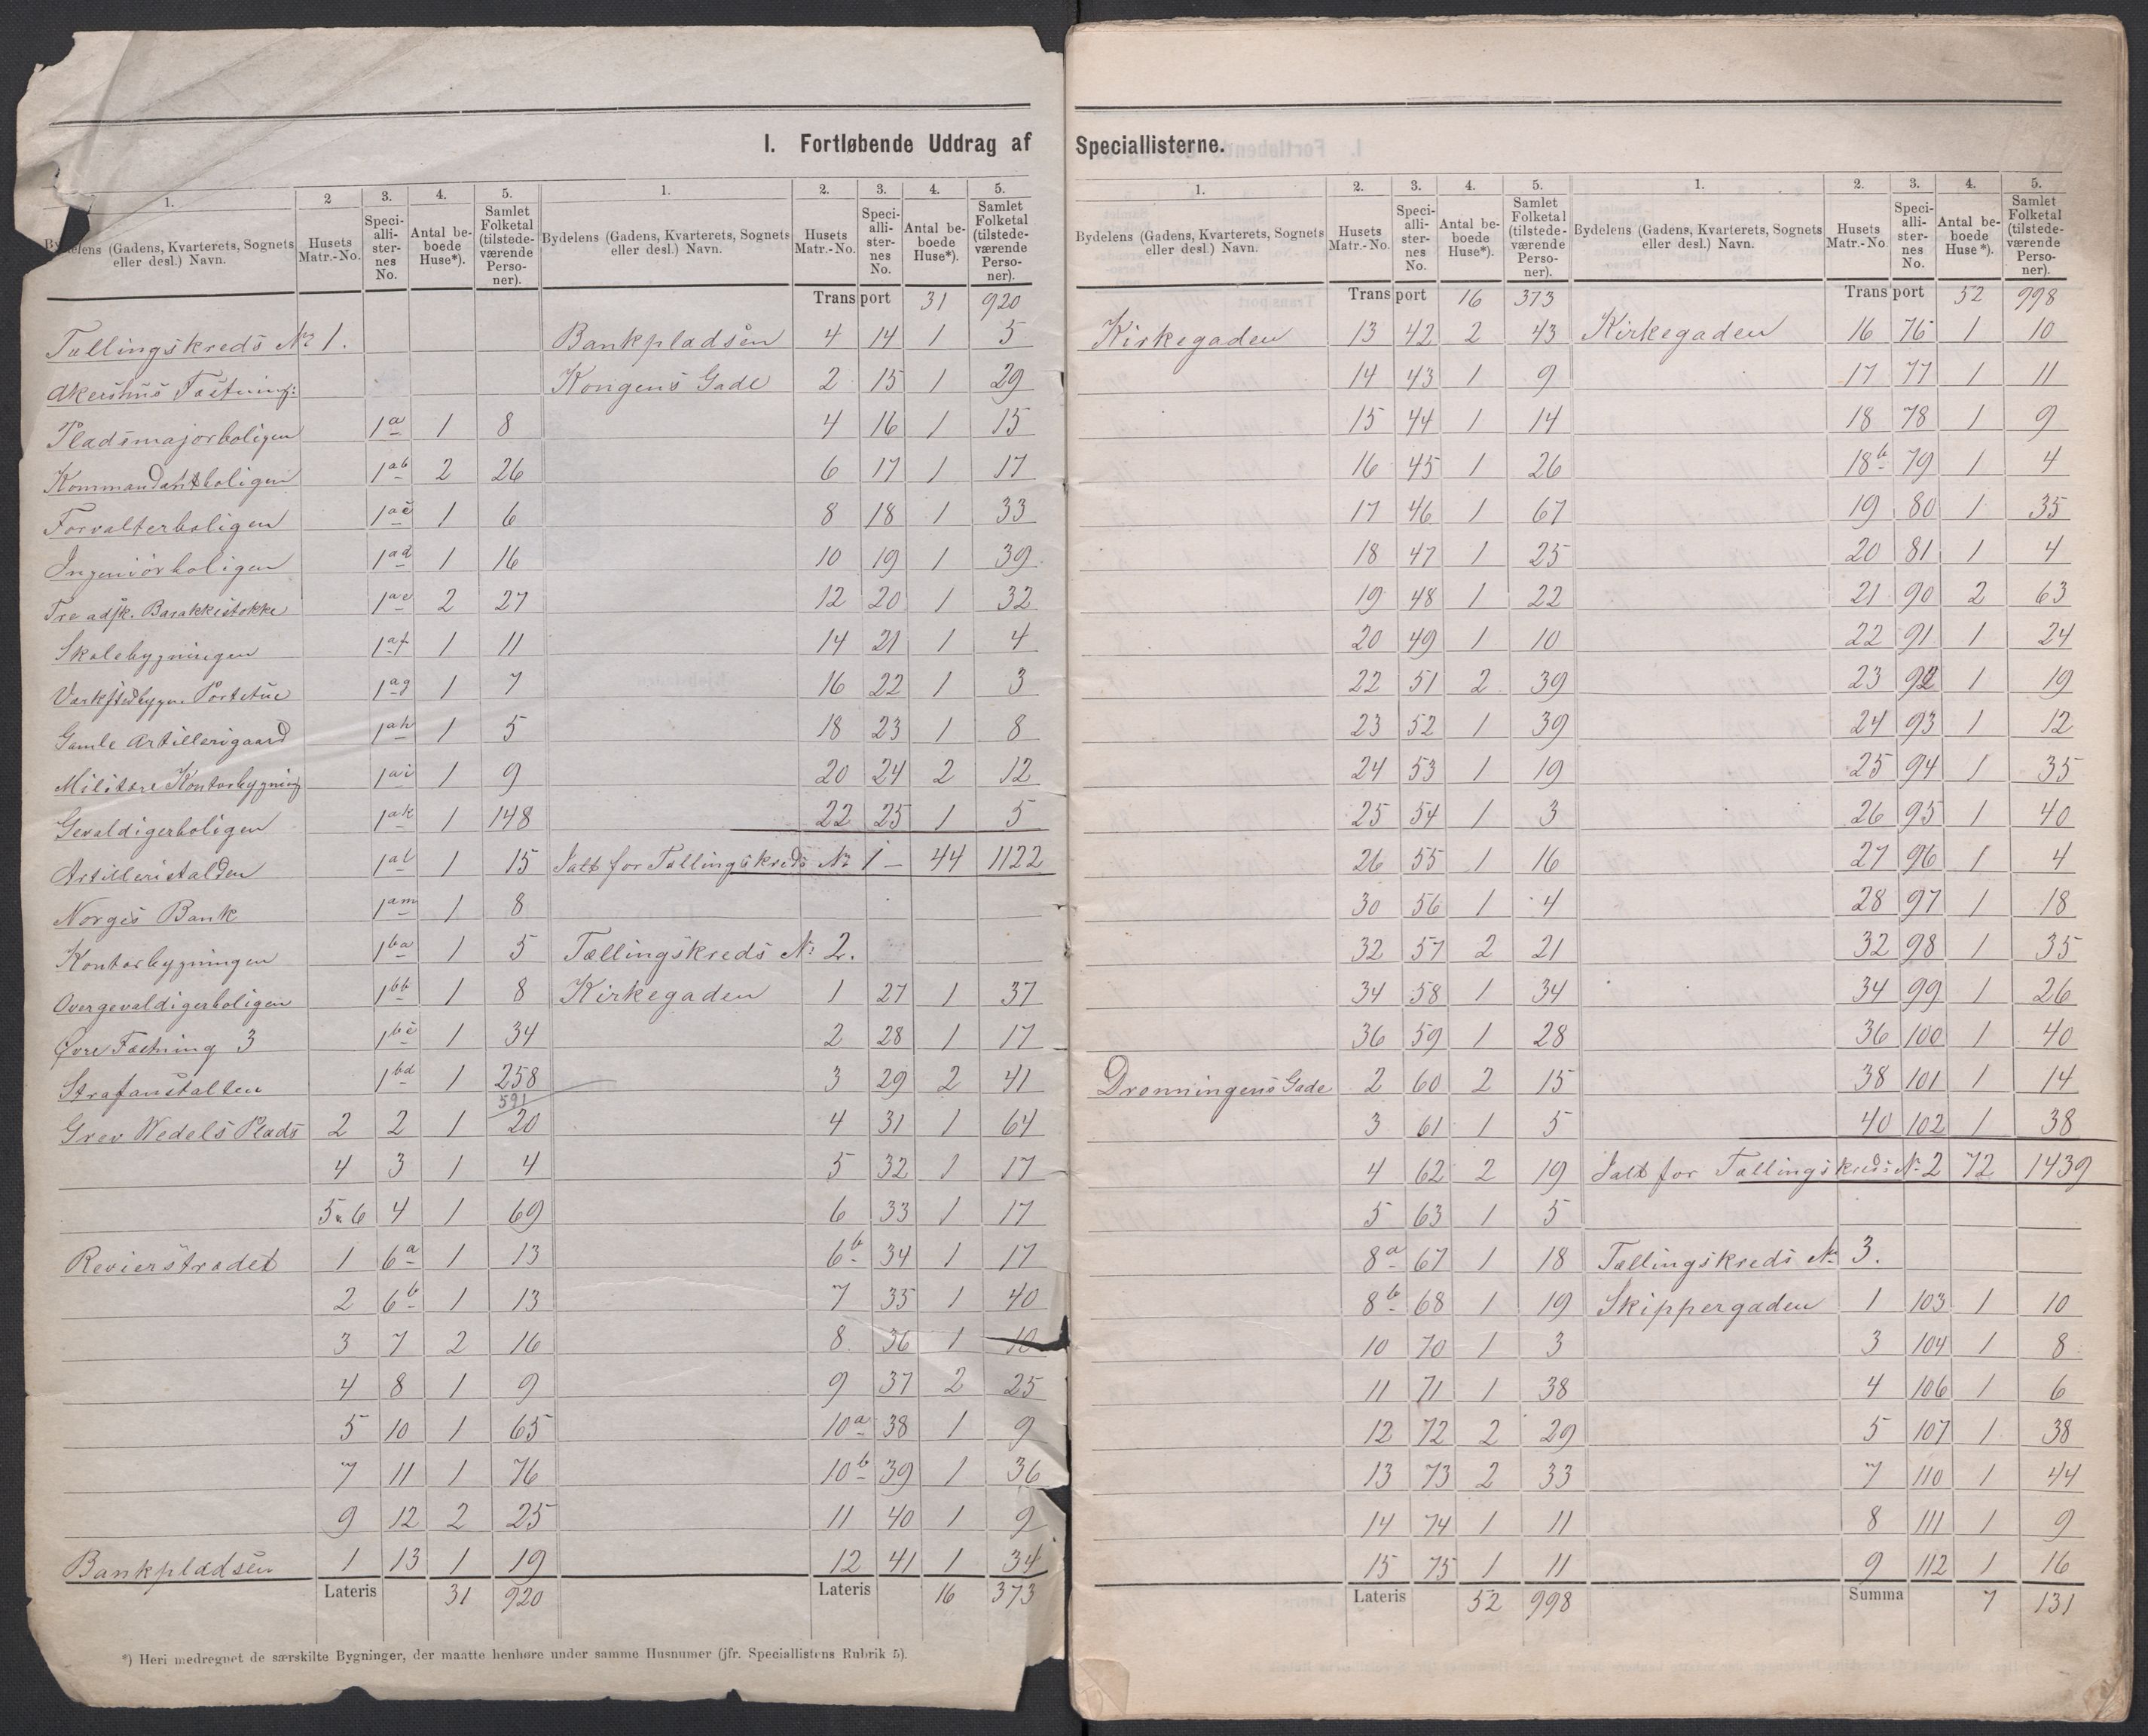 I. Fortløbende Uddrag af Speciallisterne.
1. 2 3. 4. 5.
Bydelens (Gadens, Kvarterets, Sognets eller desl.) Navn. Husets Matr.-No. Specialisternes No. Antal beboede Huse*). Samlet Folketal (tilstedeværende Personer).
Tællingskreds No 1.
Akershus Fæstning:
Pladsmajorboligen 1a 1 8
Kommandantboligen 1ab 2 26
Forvalterboligen 1ac 1 6
Ingeniörboligen 1ad 1 16
Tre adsk. Barakkistokke 1ae 2 27
Skolebygningen 1af 1 11
Værkstedbygn. Portstue 1ag 1 7
Gamle Artillerigaard 1ah 1 5
Militære Kontorbygning 1ai 1 9
Gevaldigerboligen 1ak 1 148
Artilleristalden 1al 1 15
Norges Bank 1am 1 8
Kontorbygningen 1ba 1 5
Overgevaldigerboligen 1bb 1 8
Øvre Fæstning 3 1bc 1 34
Strafanstalten 1bd 1 258
591
Grev Wedels Plads 2 2 1 20
4 3 1 4
5 & 6 4 1 69
Revierstrædet 1 6a 1 13
2 6b 1 13
3 7 2 16
4 8 1 9
5 10 1 65
7 11 1 76
9 12 2 25
Bankpladsen 1 13 1 19
Lateris 31 920
*) Heri medregnet de særskilte Bygninger, der maatte henhøre under samme Husnumer (jfr. Speciallistens Rubrik 5).
1. 2. 3. 4. 5.
Bydelens (Gadens, Kvarterets, Sognets eller desl.) Navn. Husets Matr.-No. Speciallisternes No. Antal beboede Huse*). Samlet Folketal (tilstedeværende Personer).
Transport 31 920
Bankpladsen 4 14 1 5
Kongens Gade 2 15 1 29
4 16 1 15
6 17 1 17
8 18 1 33
10 19 1 39
12 20 1 32
14 21 1 4
16 22 1 3
18 23 1 8
20 24 2 12
22 25 1 5
Ialt for Tællingskreds No 1 - 44 1122
Tællingskreds No 2.
Kirkegaden 1 27 1 37
2 28 1 17
3 29 2 41
4 31 1 64
5 32 1 17
6 33 1 17
6b 34 1 17
7 35 1 40
8 36 1 10
9 37 2 25
10a 38 1 9
10b 39 1 36
11 40 1 9
12 41 1 34
Lateris 16 373
1. 2. 3. 4. 5.
Bydelens (Gadens, Kvarterets, Sognets eller desl.) Navn. Husets Matr.-No. Speciallisternes No. Antal beboede Huse*). Samlet Folketal (tilstedeværende Personer).
Transport 16 373
Kirkegaden 13 42 2 43
14 43 1 9
15 44 1 14
16 45 1 26
17 46 1 67
18 47 1 25
19 48 1 22
20 49 1 10
22 51 2 39
23 52 1 39
24 53 1 19
25 54 1 3
26 55 1 16
30 56 1 4
32 57 2 21
34 58 1 34
36 59 1 28
Dronningens Gade 2 60 2 15
3 61 1 5
4 62 2 19
5 63 1 5
8a 67 1 18
8b 68 1 19
10 70 1 3
11 71 1 38
12 72 2 29
13 73 2 33
14 74 1 11
15 75 1 11
Lateris 52 998
1. 2. 3. 4. 5.
Bydelens (Gadens, Kvarterets, Sognets eller desl.) Navn. Husets Matr.-No. Speciallisternes No. Antal beboede Huse*). Samlet Folketal (tilstedeværende Personer).
Transport 52 998
Kirkegaden 16 76 1 10
17 77 1 11
18 78 1 9
18b 79 1 4
19 80 1 35
20 81 1 4
21 90 2 63
22 91 1 24
23 92 1 19
24 93 1 12
25 94 1 35
26 95 1 40
27 96 1 4
28 97 1 18
32 98 1 35
34 99 1 26
36 100 1 40
38 101 1 14
40 102 1 38
Ialt for Tællingskreds No 2 72 1439
Tællingskreds No 3.
Skippergaden 1 103 1 10
3 104 1 8
4 106 1 6
5 107 1 38
7 110 1 44
8 111 1 9
9 112 1 16
Summa 7 131